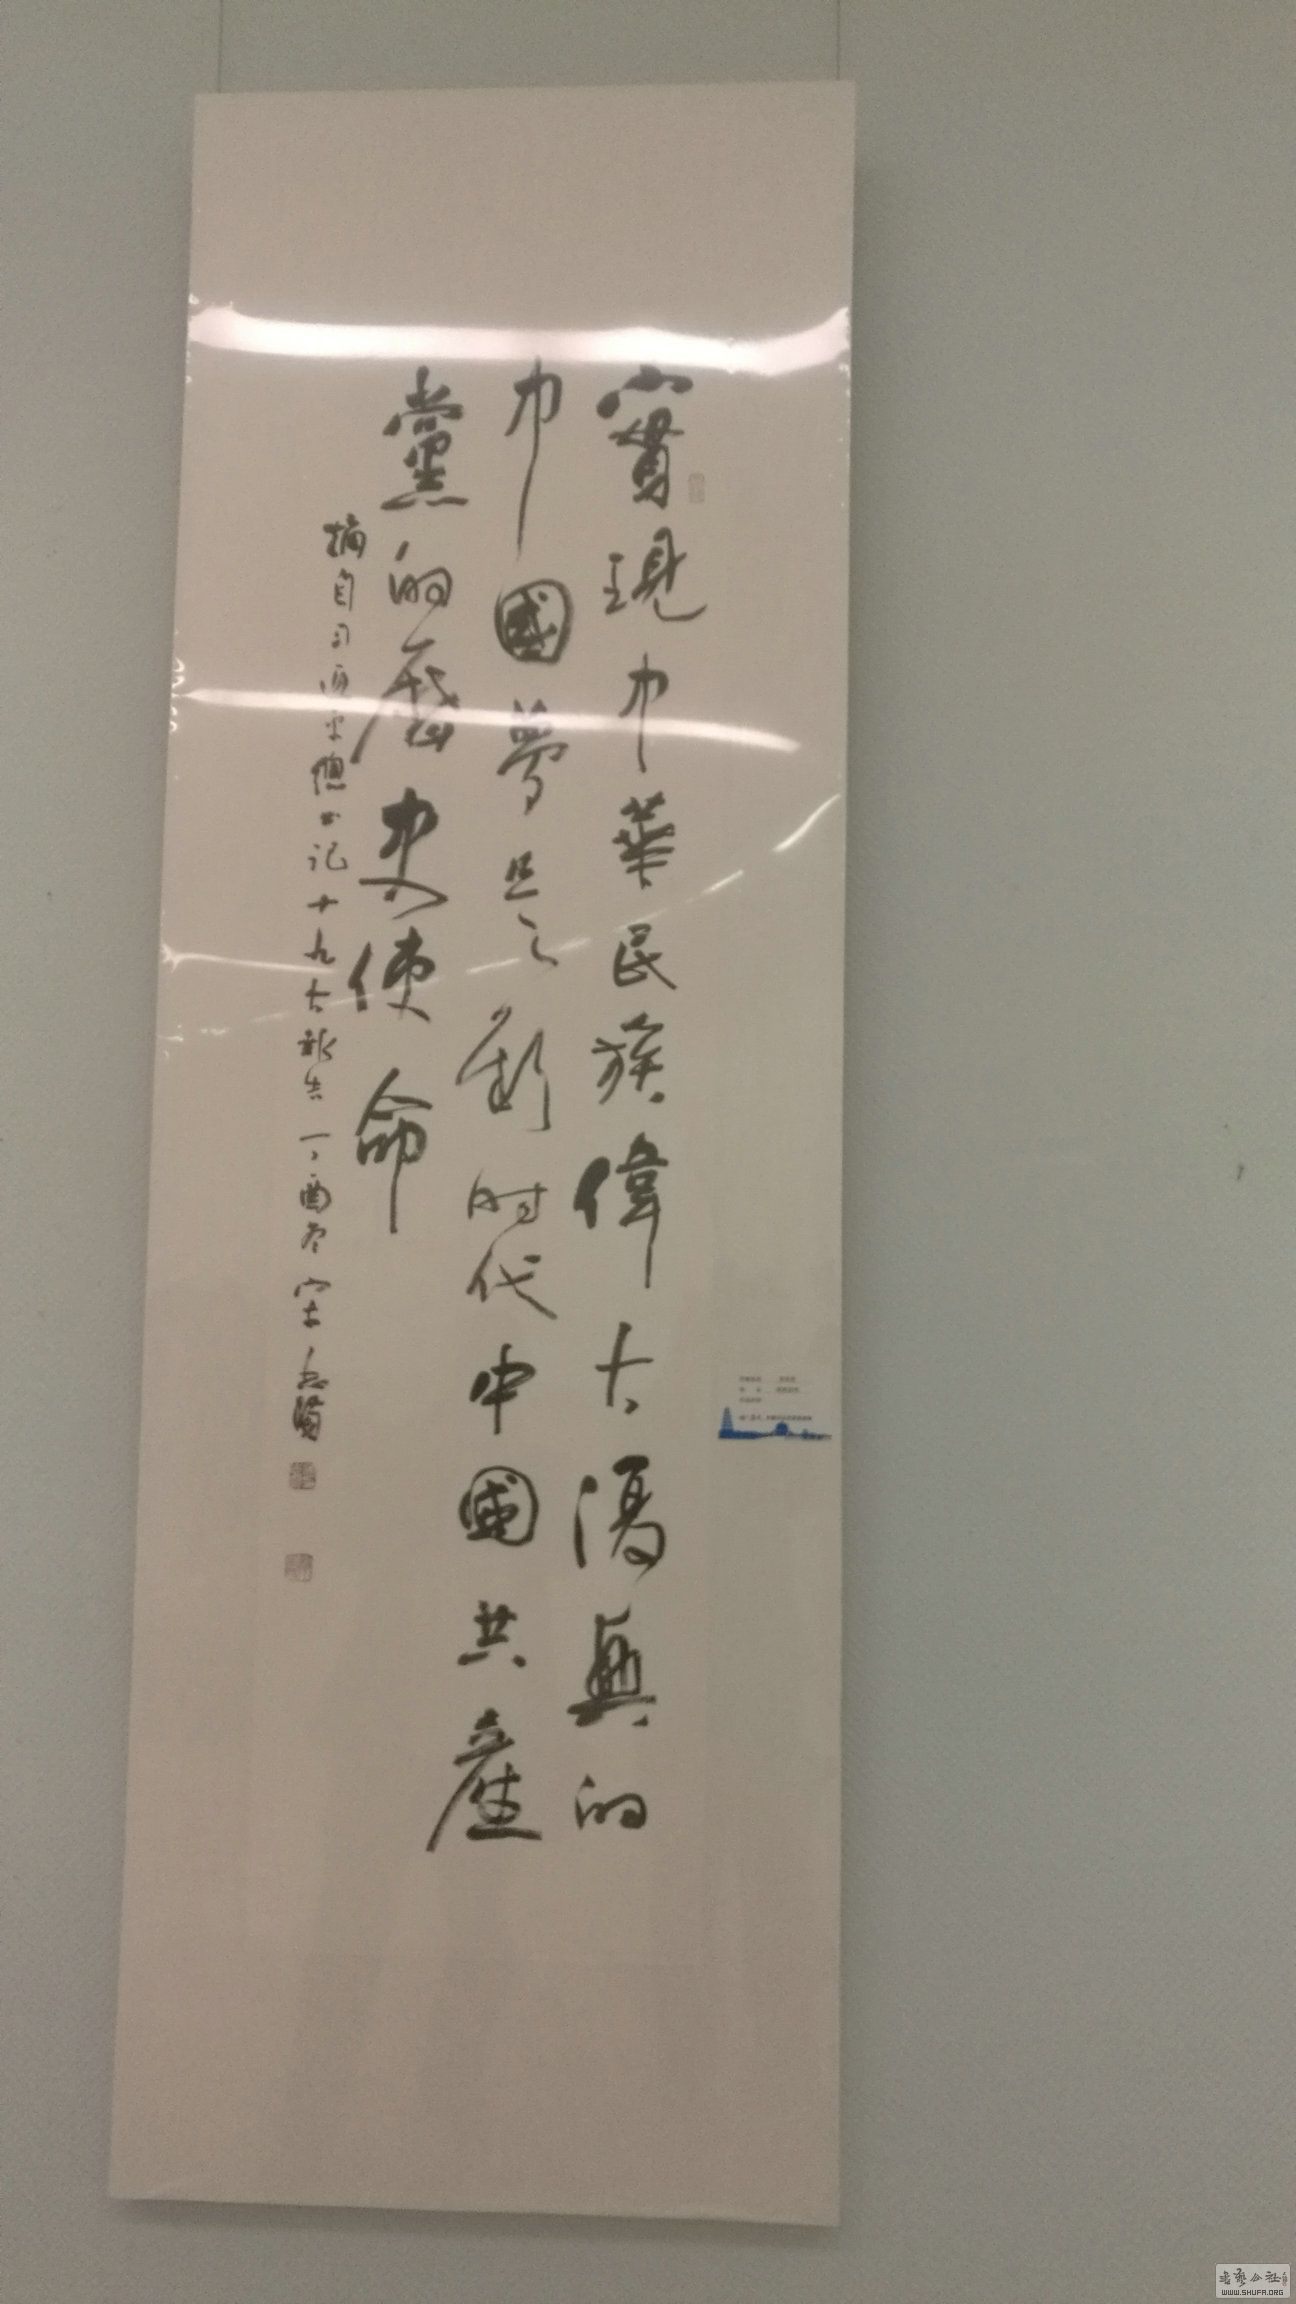 實現中華民族偉大復興的
中國夢是新时代中國共產
黨的歷史使命
摘自习近平總书记十九大报告 丁酉冬 宋
书艺公社
WWW.SHUFA.ORG